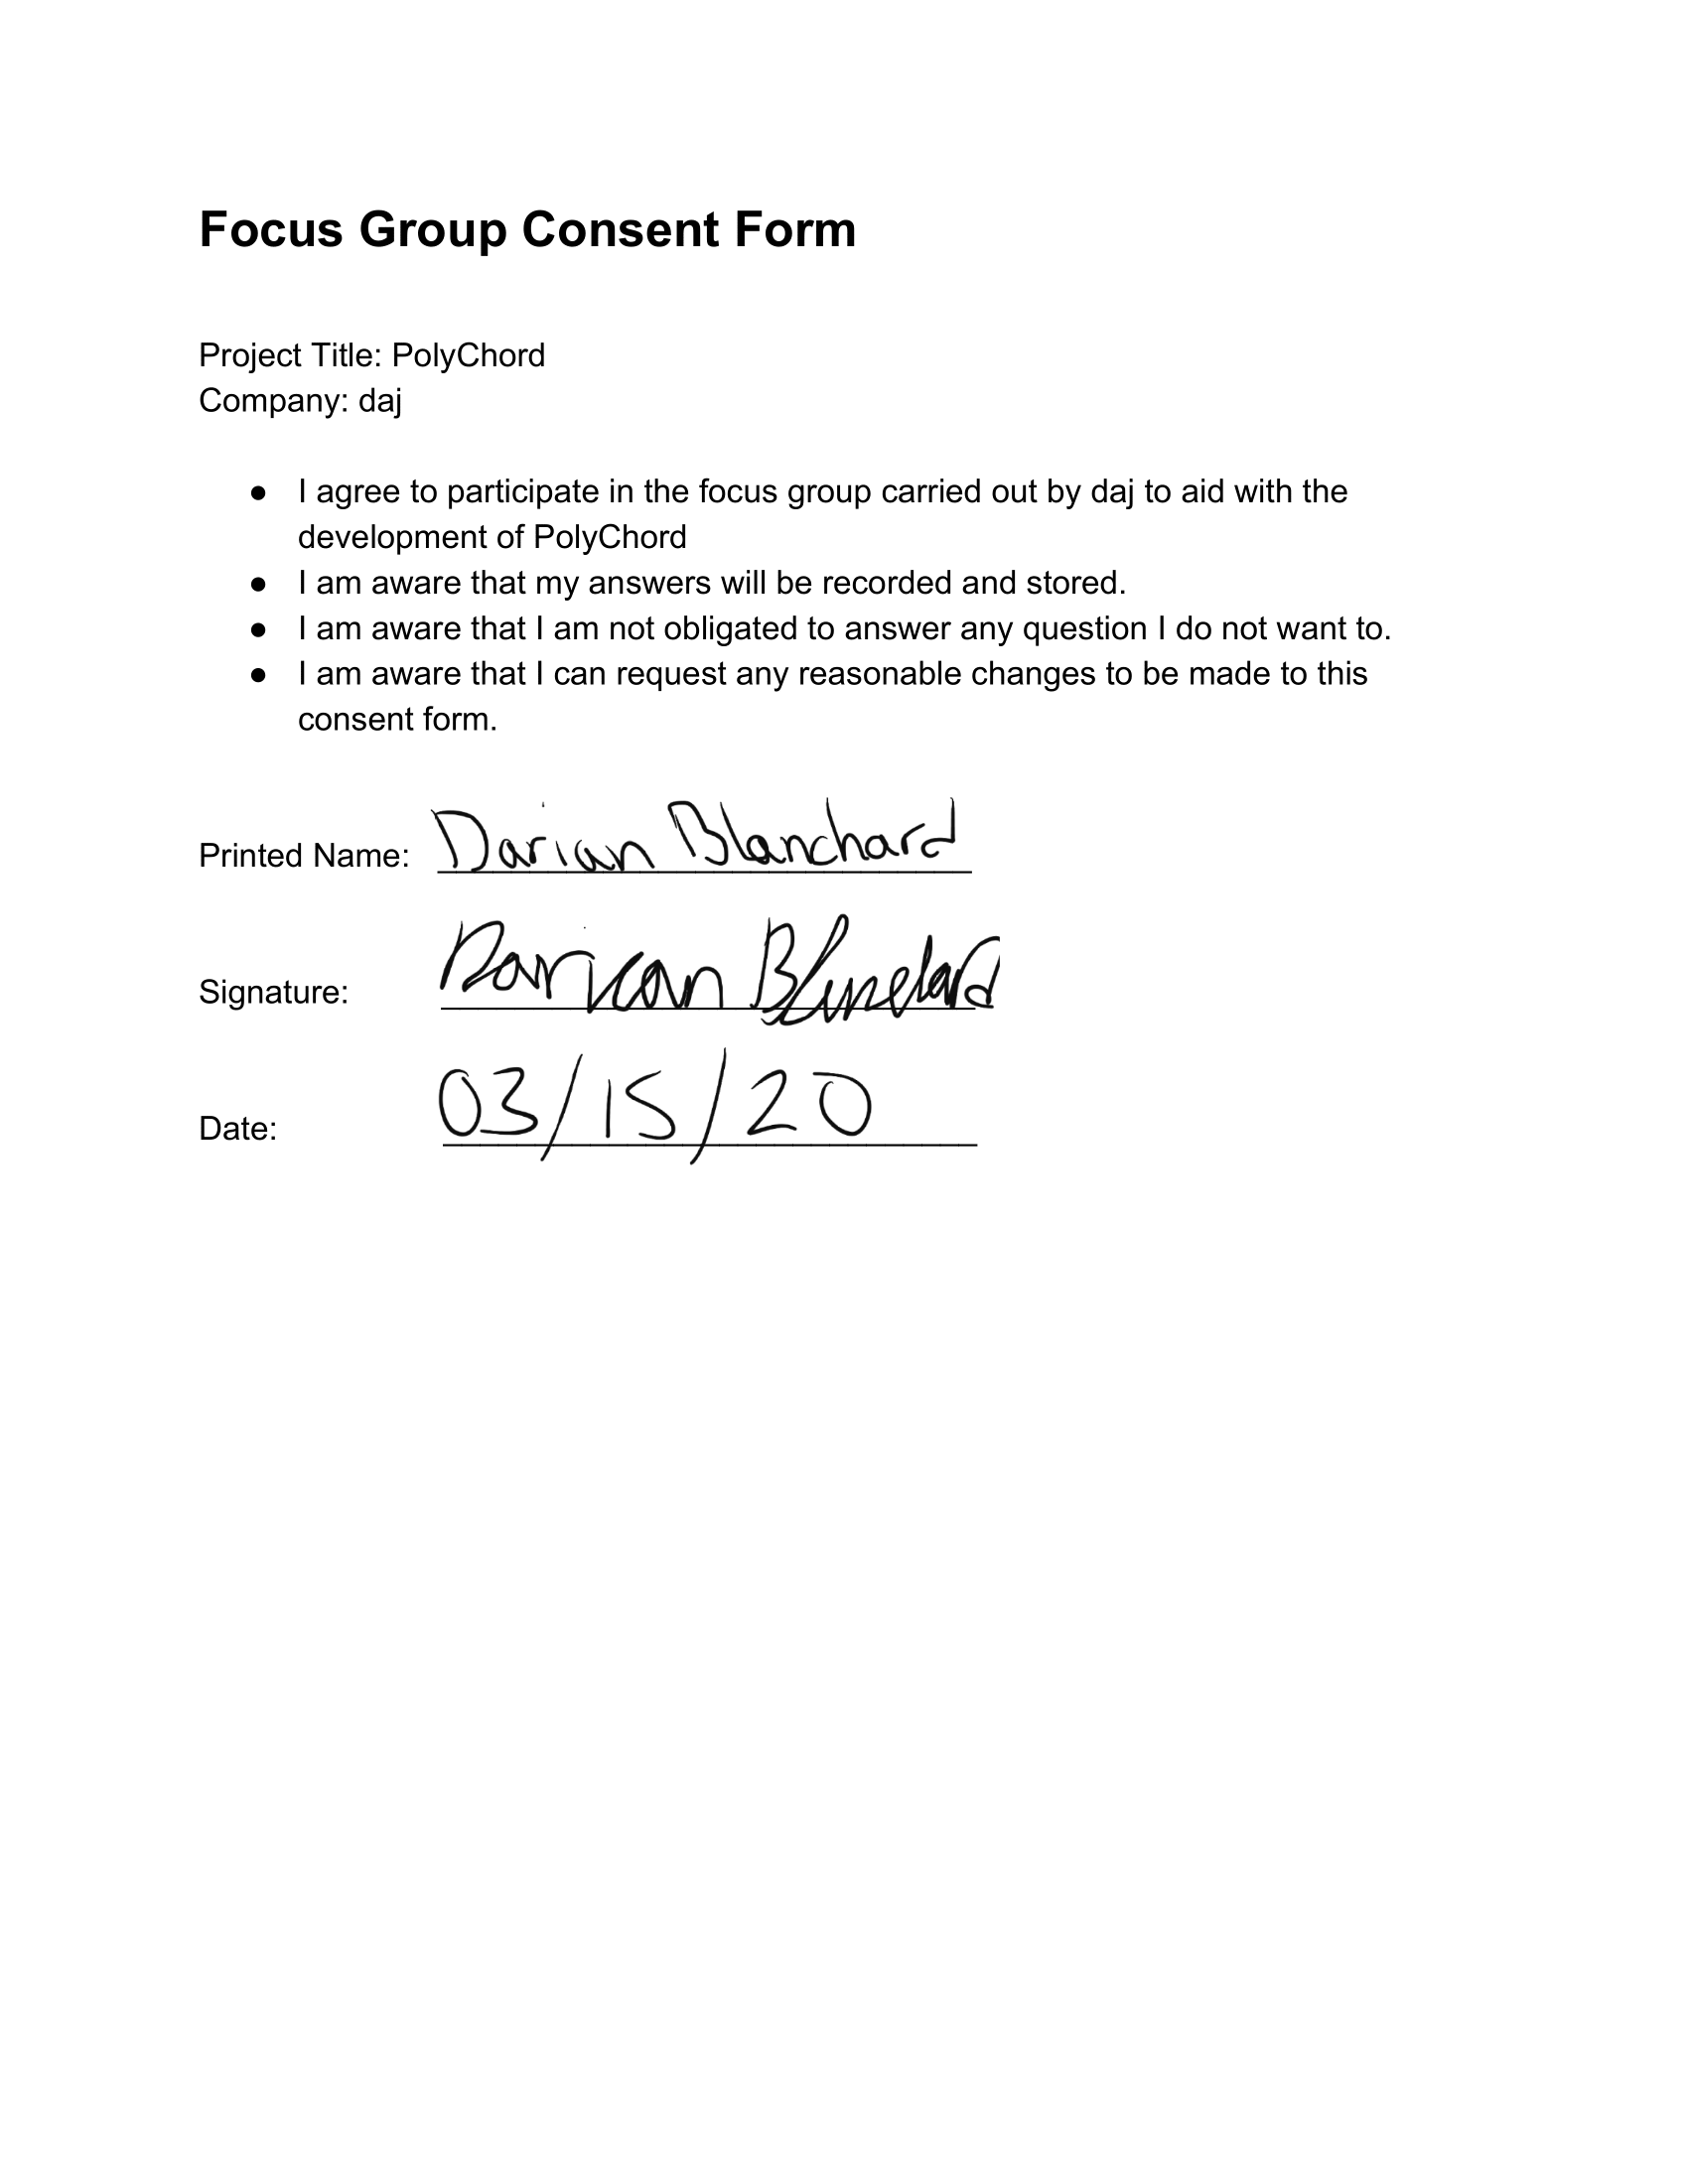 Focus Group Consent Form
Project Title: PolyChord
Company: daj
● I agree to participate in the focus group carried out by daj to aid with the
development of PolyChord
● I am aware that my answers will be recorded and stored.
● I am aware that I am not obligated to answer any question I do not want to.
● I am aware that I can request any reasonable changes to be made to this
consent form.
Printed Name: Darian Blanchard
Signature: Darian Blanchard
Date: 03/15/20